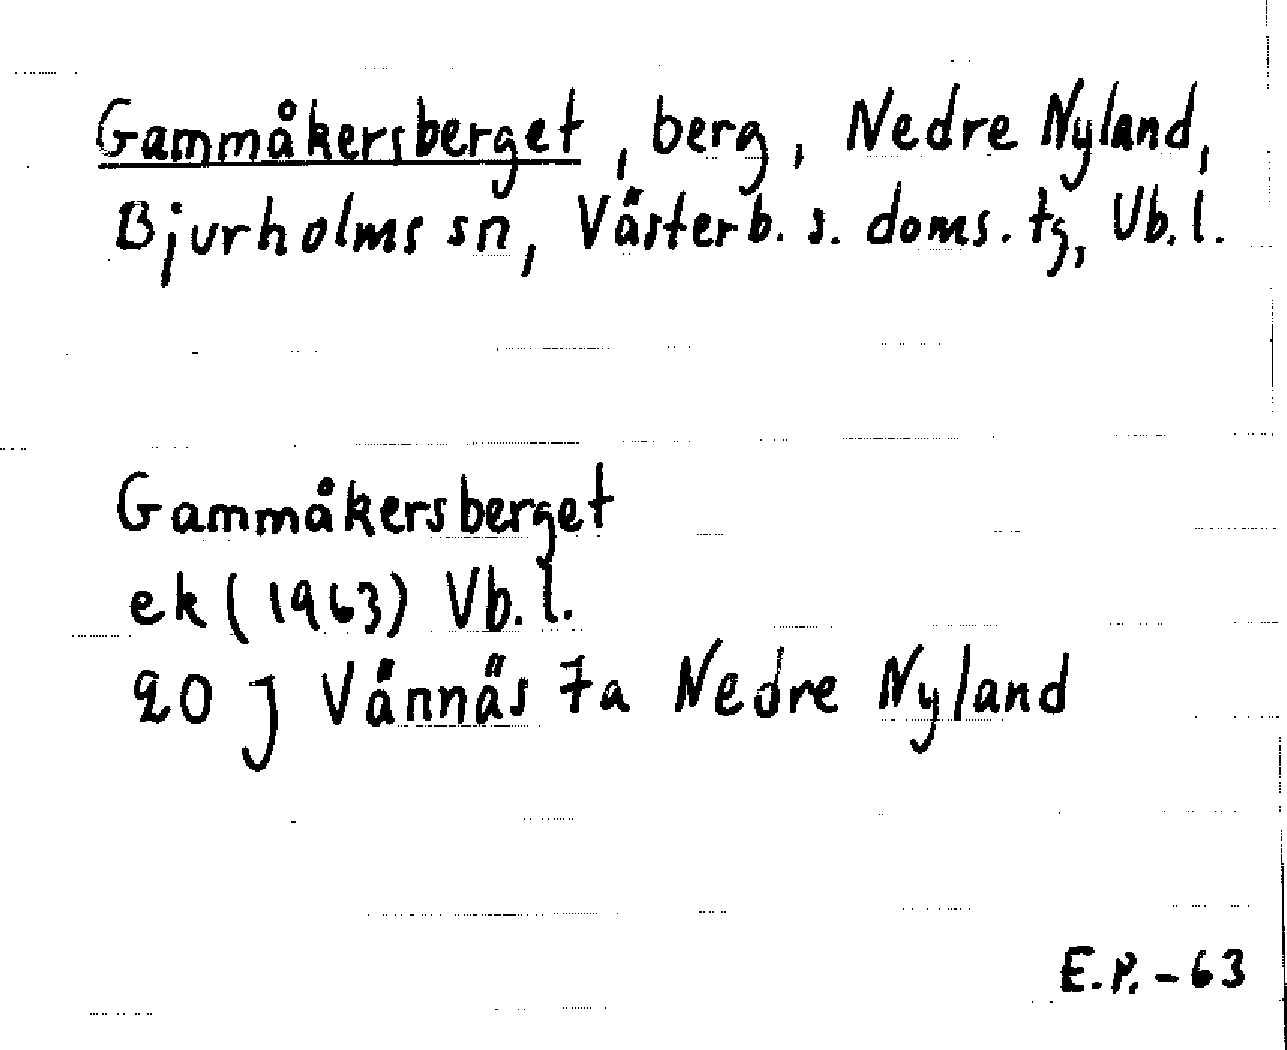 Gammåkersberget, berg, Nedre Nyland,
Bjurholms sn, Västerb. s. doms. tg, Vb. l.
Gammåkersberget
ek (1963) Vb. l.
20 J Vännäs 7a Nedre Nyland
E.P. - 63